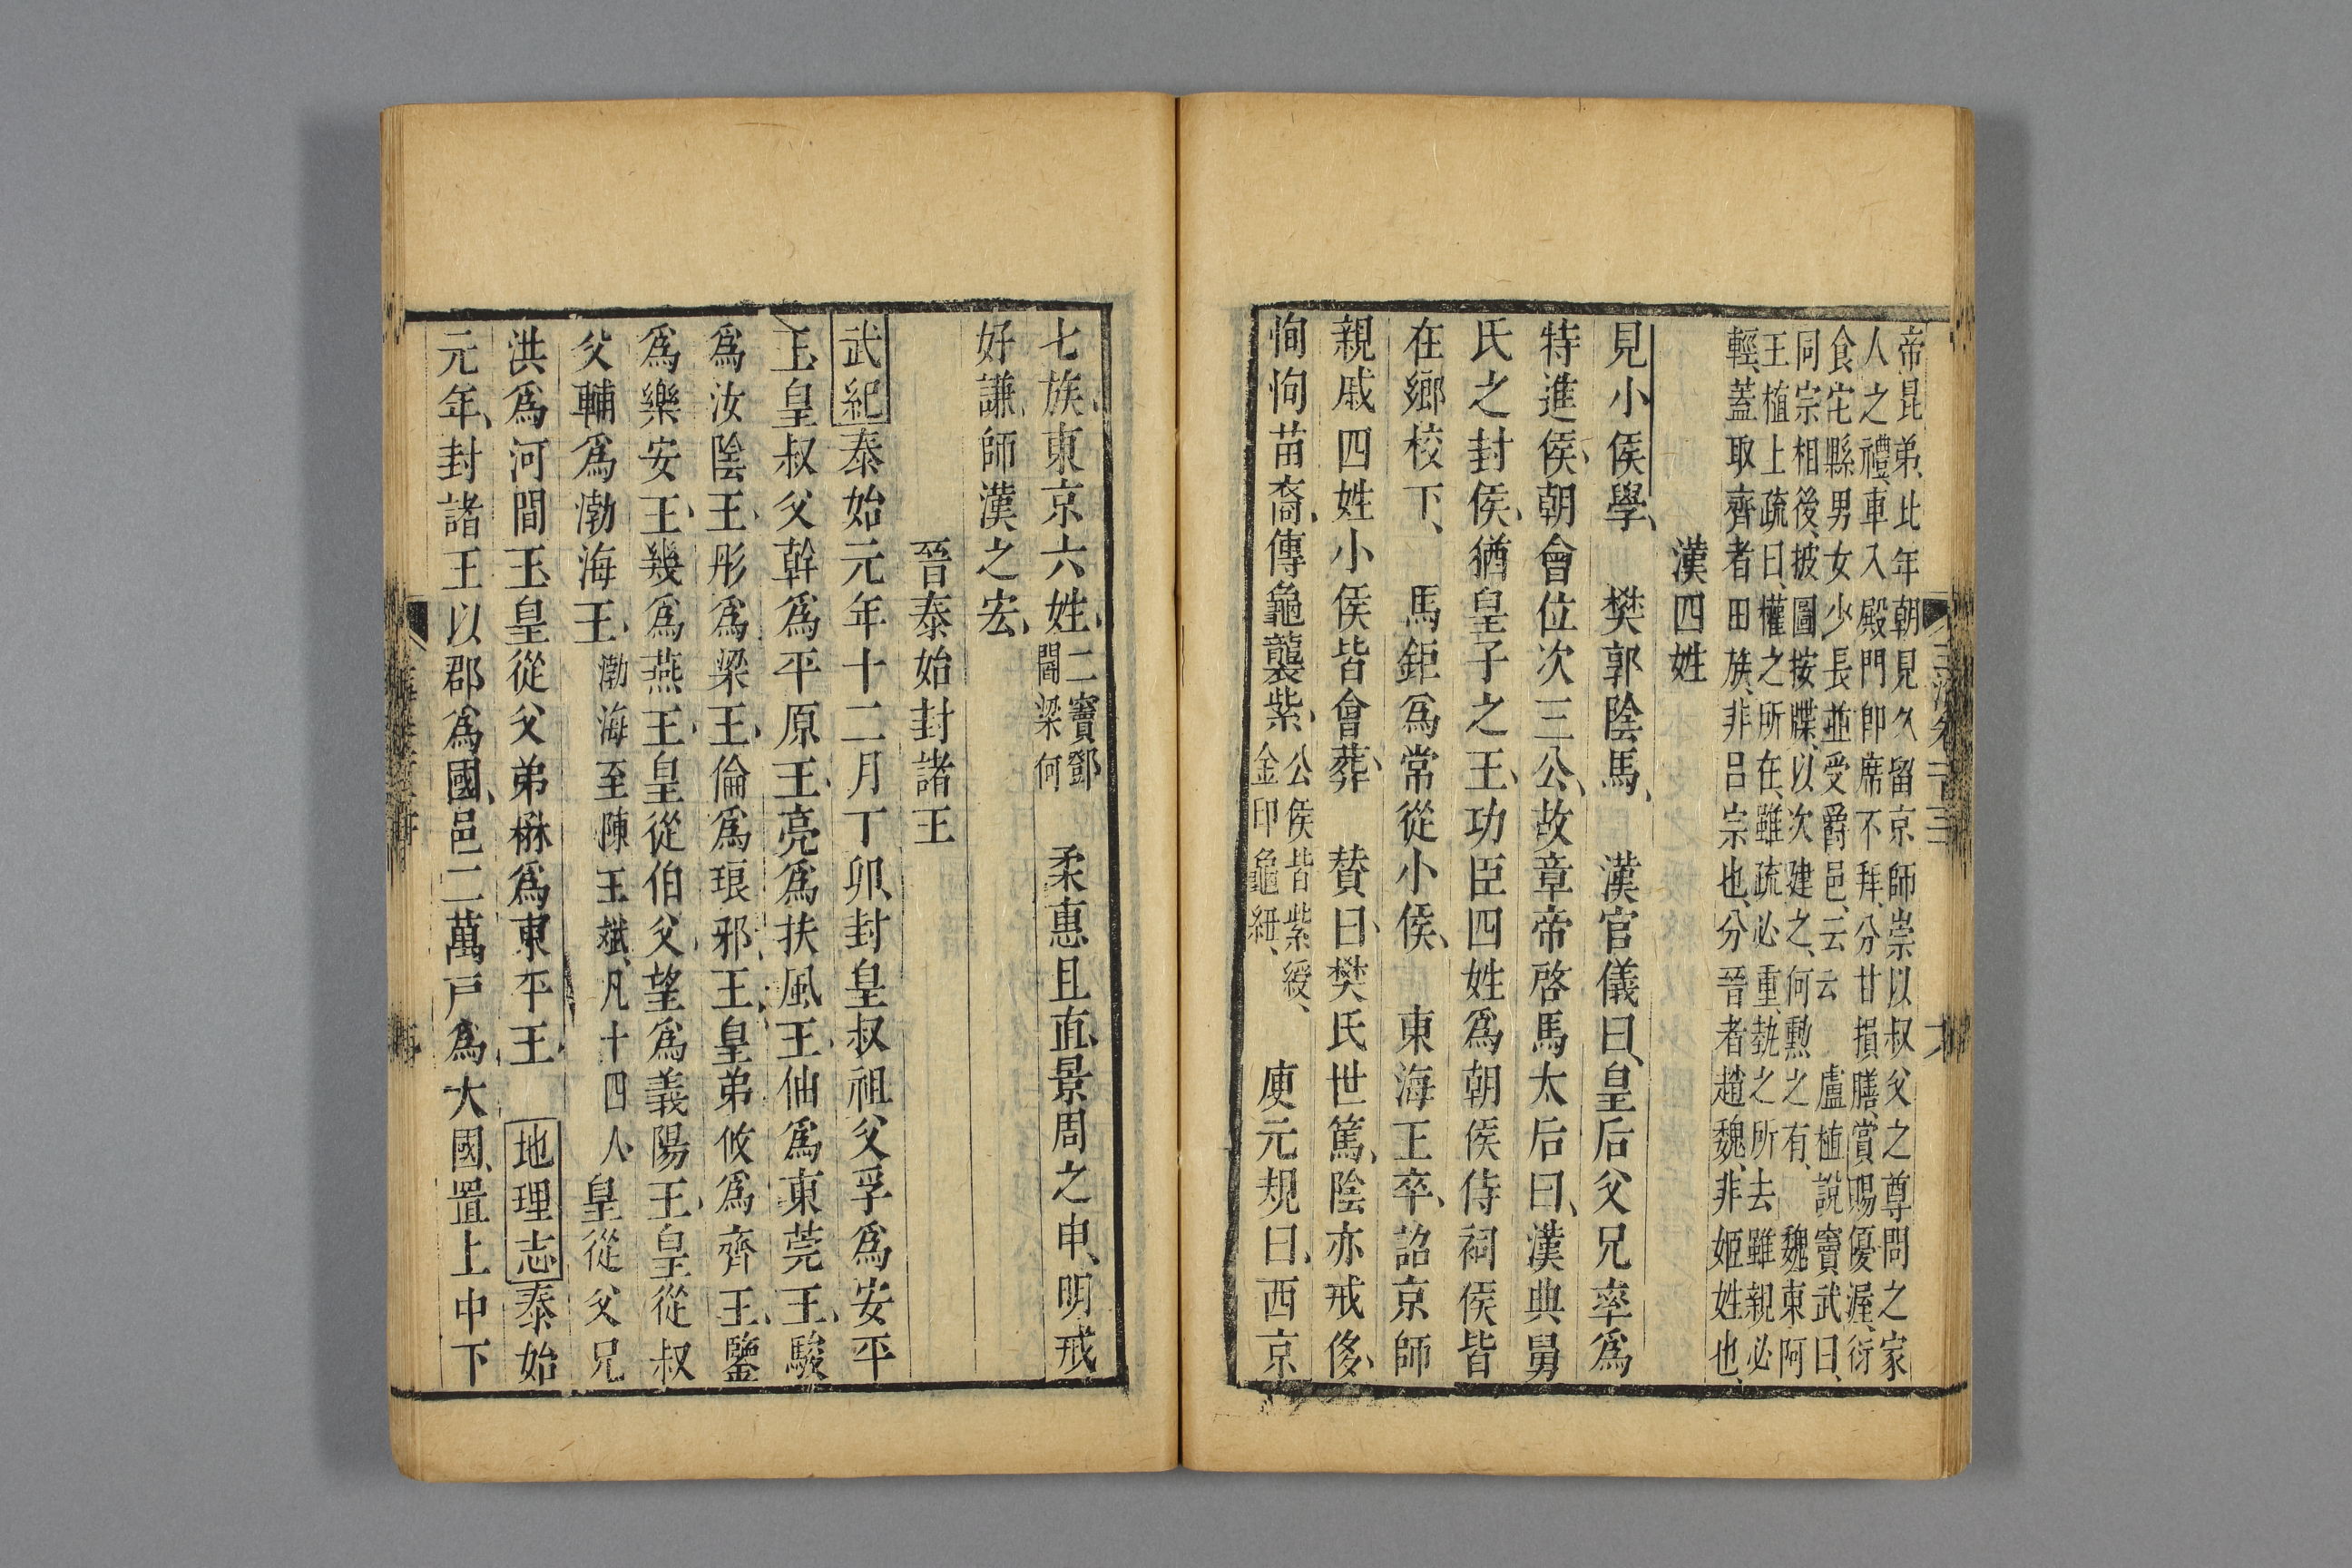 帝昆弟、比年朝見久留京師崇以叔父之尊問之家
人之禮、車入殿門即席不拜、分甘損膳、賞賜優渥、衍
食宅縣男女少長並受爵邑、云云　盧植說竇武曰、
同宗相後、披圖按牒、以次建之、何勲之有、　魏東阿
王植上疏曰、權之所在、雖疏必重、埶之所去雖親必
輕、蓋取齊者田族、非呂宗也、分晉者趙魏、非姬姓也、
漢四姓
見小侯學、　樊郭陰馬、　漢官儀曰、皇后父兄率爲
特進侯、朝會位次三公、故章帝啓馬太后曰、漢典舅
氏之封侯、猶皇子之王、功臣四姓爲朝侯侍祠侯皆
在鄉校下、　馬鉅爲常從小侯、　東海王卒、詔京師
親戚四姓小侯皆會葬、　賛曰、樊氏世篤、陰亦戒侈、
恂恂苗裔、傳龜襲紫、公侯皆紫綬、金印龜紐、　庾元規曰、西京
七族、東京六姓、二竇鄧閻梁何　柔惠且直、景周之申、明戒
好謙、師漢之宏、
晉泰始封諸王
武紀泰始元年十二月丁卯、封皇叔祖父孚爲安平
王、皇叔父幹爲平原王、亮爲扶風王、伷爲東莞王、駿
爲汝陰王、肜爲梁王、倫爲琅邪、王、皇弟攸爲齊王、鑒
爲樂安王、幾爲燕王、皇從伯父望爲義陽王、皇從叔
父輔爲渤海王、渤海至陳王斌、凡十四人、皇從父兄
洪爲河間王、皇從父弟楙爲東平王、　地理志泰始
元年、封諸王以郡爲國、邑二萬戸爲大國、置上中下